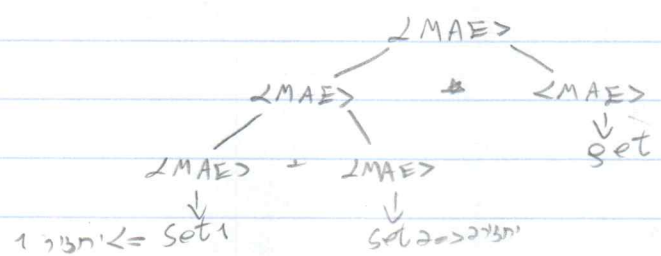 <MAE>
<MAE> * <MAE>
get
<MAE> + <MAE>
<= set1 set2=>